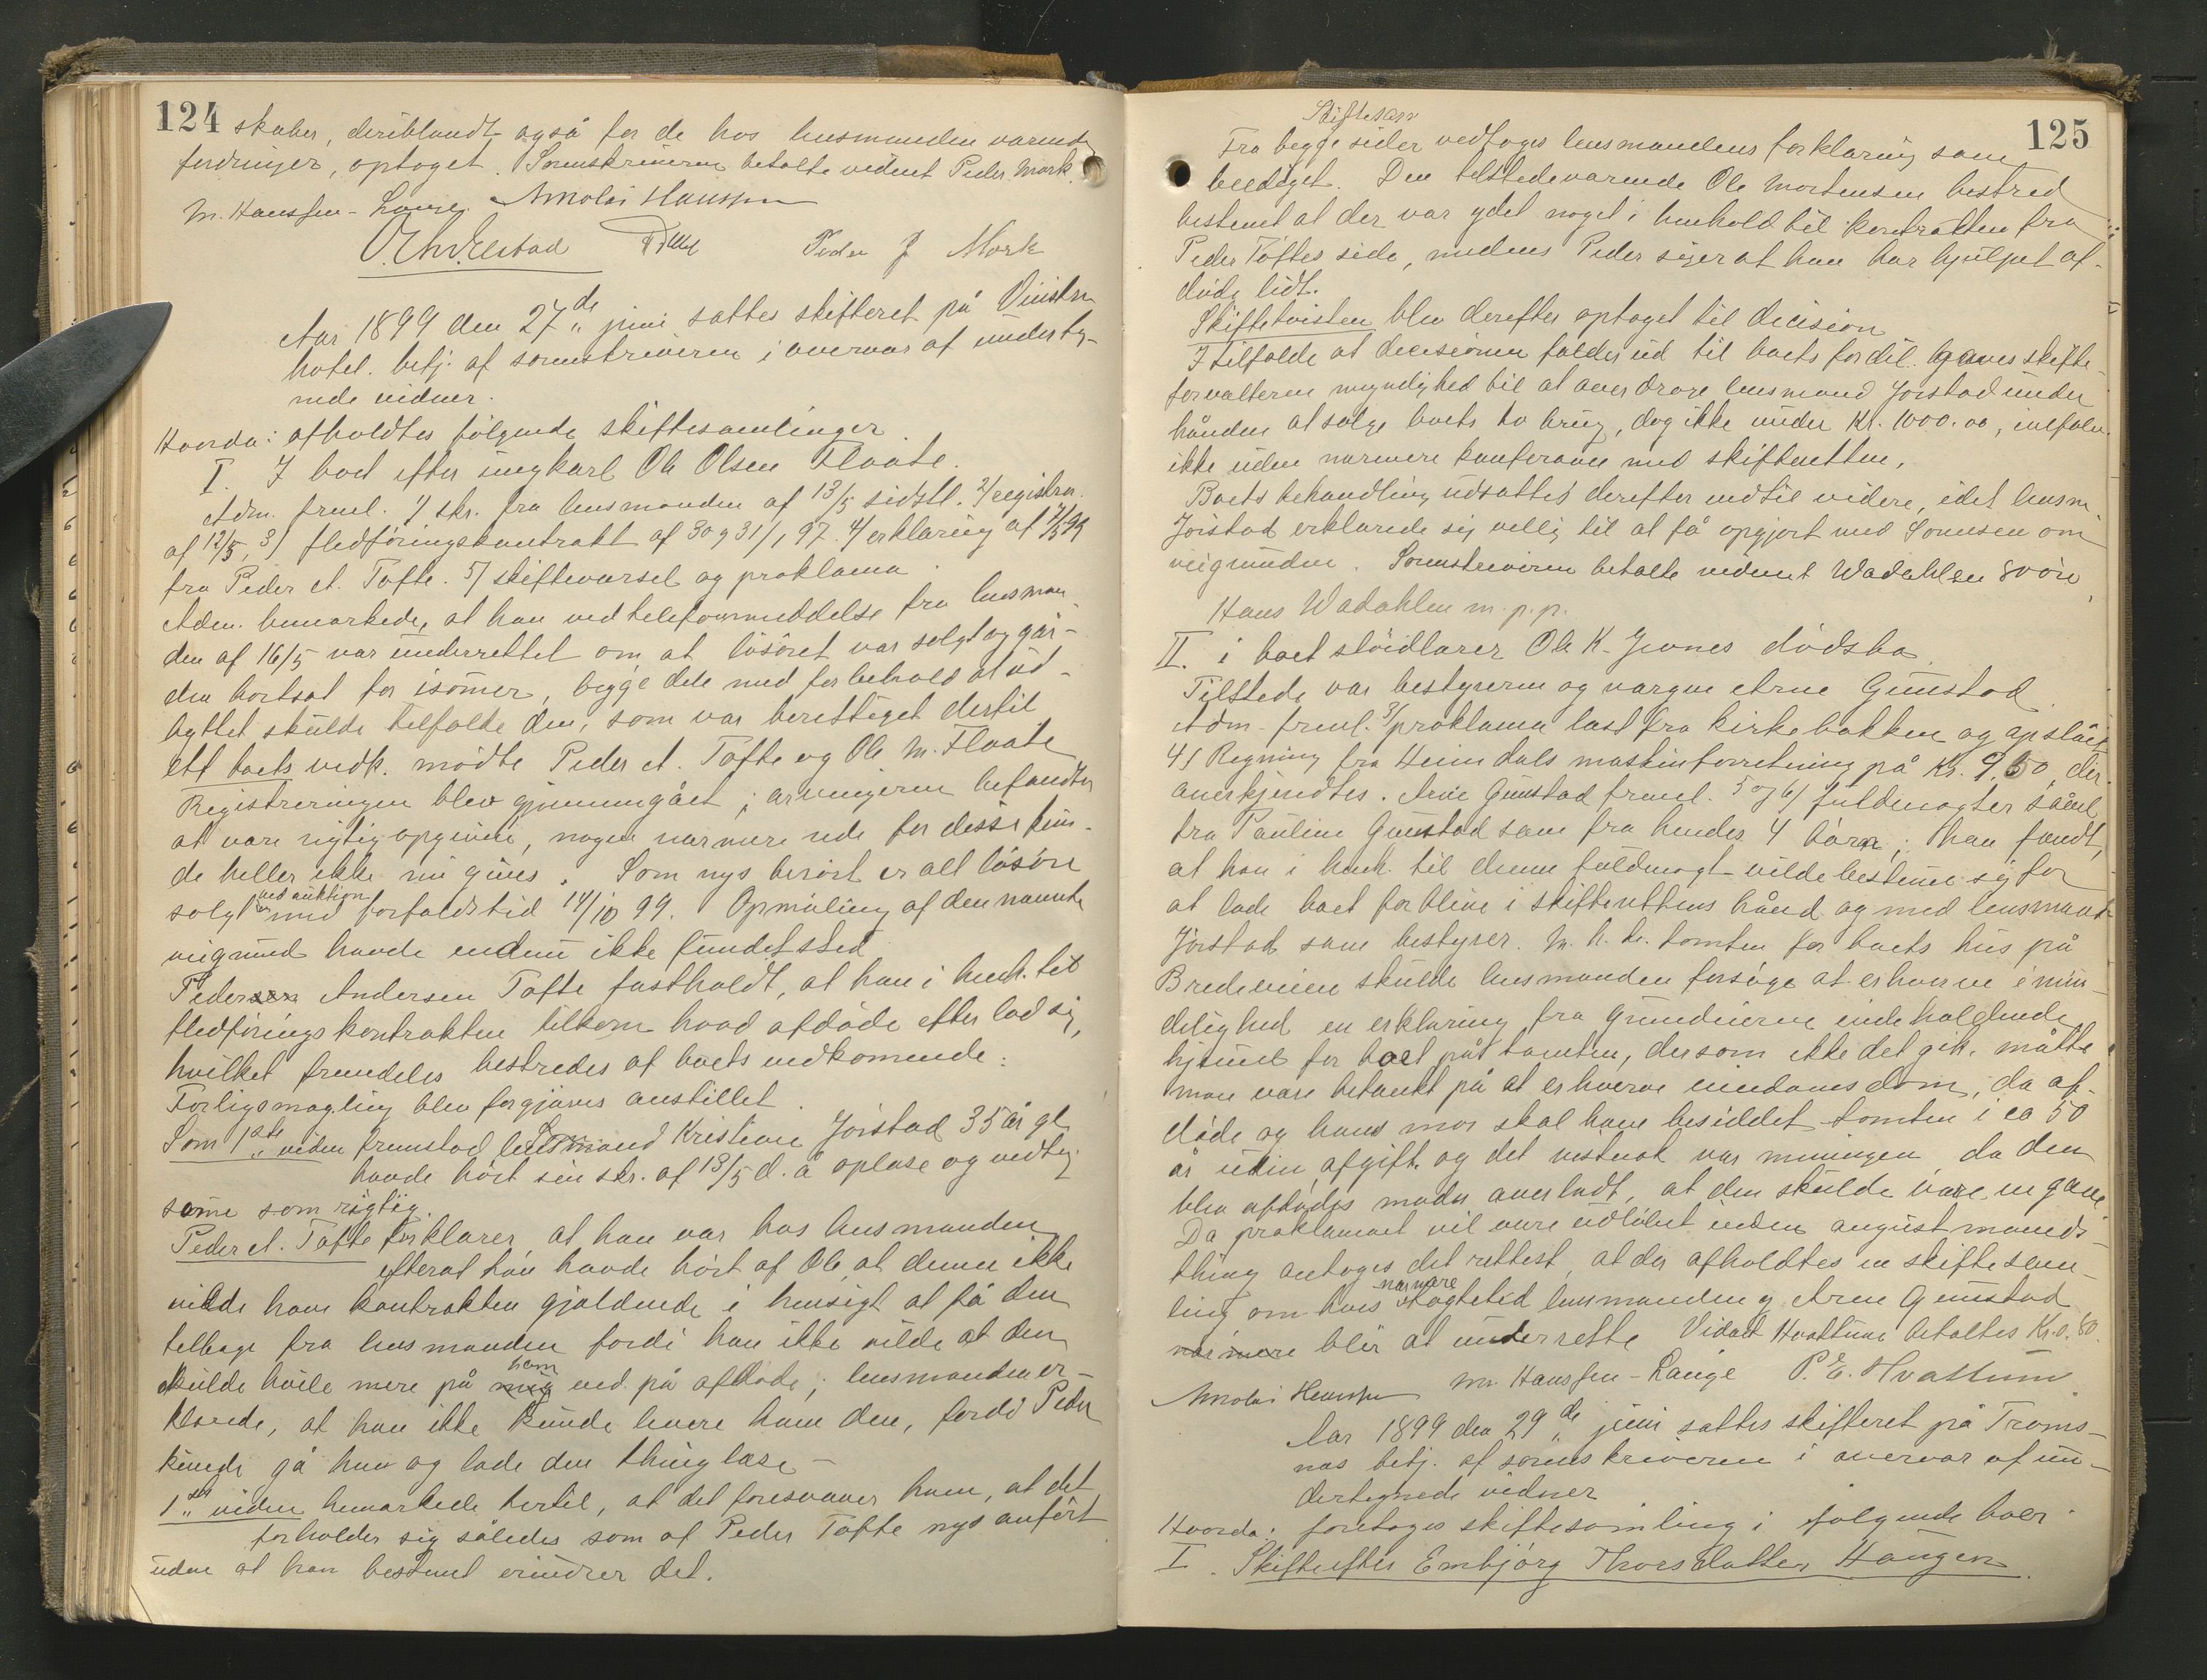 124
skaber, deriblandt også for de hos lensmanden værende
fordringer, optaget. Sorenskriveren betalte vidnet Peder Mork.
M. Hanssen-Lange. Nikolai Hanssen
Peder J Mork
Aar 1899 den 27de juni sattes skifteret på Vinstra
hotel. betj. af sorenskriveren i overvær af underteg-
nede vidner.
Hvorda: afholdtes følgende skiftesamlinger
I. I boet efter ungkarl Ole Olsen Flaate.
Adm. freml. 1/ skr. fra lensmanden af 13/5 sidstl. 2/ registrer.
af 12/5, 3/ fledføringskontrakt af 30 og 31/1 97. 4/ erklæring af 2/5 99
fra Peder A. Tofte. 5/ skiftevarsel og proklama.
Adm. bemærkede, at han ved telefonmeddelse fra lensman-
den af 16/5 var underrettet om at løsøret var solgt og går-
den bortsat for isommer, begge dele med forbehold at ud-
byttet skulde tilfalde den, som var berettiget dertil
Af boets vedk. mødte Peder A. Tofte og Ole M. Flaate
Registreringen blev gjennemgået; arvingerne befandtes
at være rigtig opgivne, nogen nærmere rede for disse kun-
de heller ikke nu gives. Som nys berørt er alt løsøre
solgt ved auktion med forfaldstid 14/10 99. Opmåling af den nævnte
veigrund havde endnu ikke fundet sted
Peder Andersen Tofte fastholdt, at han i henh. til
fledføringskontrakten tilkom hvad afdøde efterlod sig,
hvilket fremdeles bestredes af boets vedkommende.
Forligsmægling blev forgjæves anstillet.
Som 1ste vidne fremstod lensmand Kristian Jørstad 35 år gl.
havde hørt sin skr. af 13/5 d. å oplæse og vedtog
samme som rigtig.
Peder A. Tofte forklarer at han var hos lensmanden
efterat han havde hørt af Ole at denne ikke
vilde have kontrakten gjældende i hensigt at få den
tilbage fra lensmanden fordi han ikke vilde at den
skulde hvile mere på ham end på afdøde; lensmanden er-
klærede, at han ikke kunde levere ham den, fordi Peder
kunde gå hen og lade den thinglæse -
1ste vidne bemærkede hertil, at det foresvæver ham, at det
forholder sig således som af Peder Tofte nys anført
uden at han bestemt erindrer det.
125
Skiftesam
Fra begge sider vedtoges lensmandens forklaring som
beediget. Den tilstedeværende Ole Mortensen bestred
bestemt at der var ydet noget i henhold til kontrakten fra
Peder Toftes side, medens Peder siger at han har hjulpet af-
døde lidt.
Skiftetvisten blev derefter optaget til decision
I tilfælde at decisionen falder ud til boets fordel gaves skifte-
forvalteren myndighed til at overdrage lensmand Jørstad under
hånden at sælge boets to brug, dog ikke under Kr. 1000.00, ialfald
ikke uden nærmere konferance med skifteretten.
Boets behandling udsattes derefter indtil videre, idet lensm.
Jørstad erklærede sig villig til at få opgjort med Lomnsen om
veigrunden. Sorenskriveren betalte vidnet Wadahlen 80 øre
Hans Wadahlen m.p.p.
II. i boet sløidlærer Ole K. Jevnes dødsbo.
Tilstede var bestyreren og værgen Arne Gunstad
Adm. freml. 3/ proklama læst fra kirkebakken og opslået
4/ Regning fra Heimdals maskinforretning på Kr. 9,50, der
anerkjendtes. Arne Gunstad freml. 5 og 6/ fuldmagter såvel
fra Pauline Gunstad som fra hendes 4 børn; han fandt,
at han i henh. til denne fuldmagt vilde bestemme sig for
at lade boet forblive i skifterettens hånd og med lensmand
Jørstad som bestyrer. M. h. t. tomten for boets hus på
Bredeveien skulde lensmanden forsøge at erhverve i min-
delighed en erklæring fra grundeierne indeholdende
hjemmel for boet på tomten, dersom ikke det gik, måtte
man være betænkt på at erhverve eiendomsdom, da af-
døde og hans mor skal have besiddet tomten i ca 50
år uden afgift og det vistnok var meningen, da den
blev afdødes moder overladt, at den skulde være en gave
Da proklamaet vil være udløbet inden august måneds
thing antoges det rettest, at der afholdtes en skiftesam-
ling om hvis nærmere tid lensmanden og Arne Gunstad
nærmere blir at underrette Vidnet Hvattum betaltes Kr. 0.80.
Nikolai Hanssen M. Hanssen-Lange P. E. Hvattum.
Aar 1899 den 29de juni sattes skifteret på Troms-
næs betj. af sorenskriveren i overvær af un-
dertegnede vidner
Hvorda: foretoges skiftesamling i følgende boer.
I. Skifte efter Embjørg Thorsdatter Haugen.